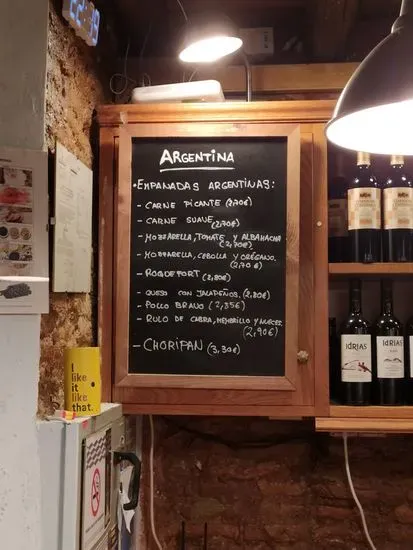 22:19
ARGENTINA
• EMPANADAS ARGENTINAS:
- CARNE PICANTE (2,70€)
- CARNE SUAVE (2,70€)
- MOZZARELLA, TOMATE Y ALBAHACA
(2,70€)
- MOZZARELLA, CEBOLLA Y ORÉGANO.
(2,70 €)
- ROQUEFORT (2,80€)
- QUESO CON JALAPEÑOS. (2,80€)
- POLLO BRAVO (2,35€)
- RULO DE CABRA, MEMBRILLO Y NUECES.
(2,90€)
- CHORIPAN (3,30€)
I
like
it
like
that.
IDRIAS
IDRIAS